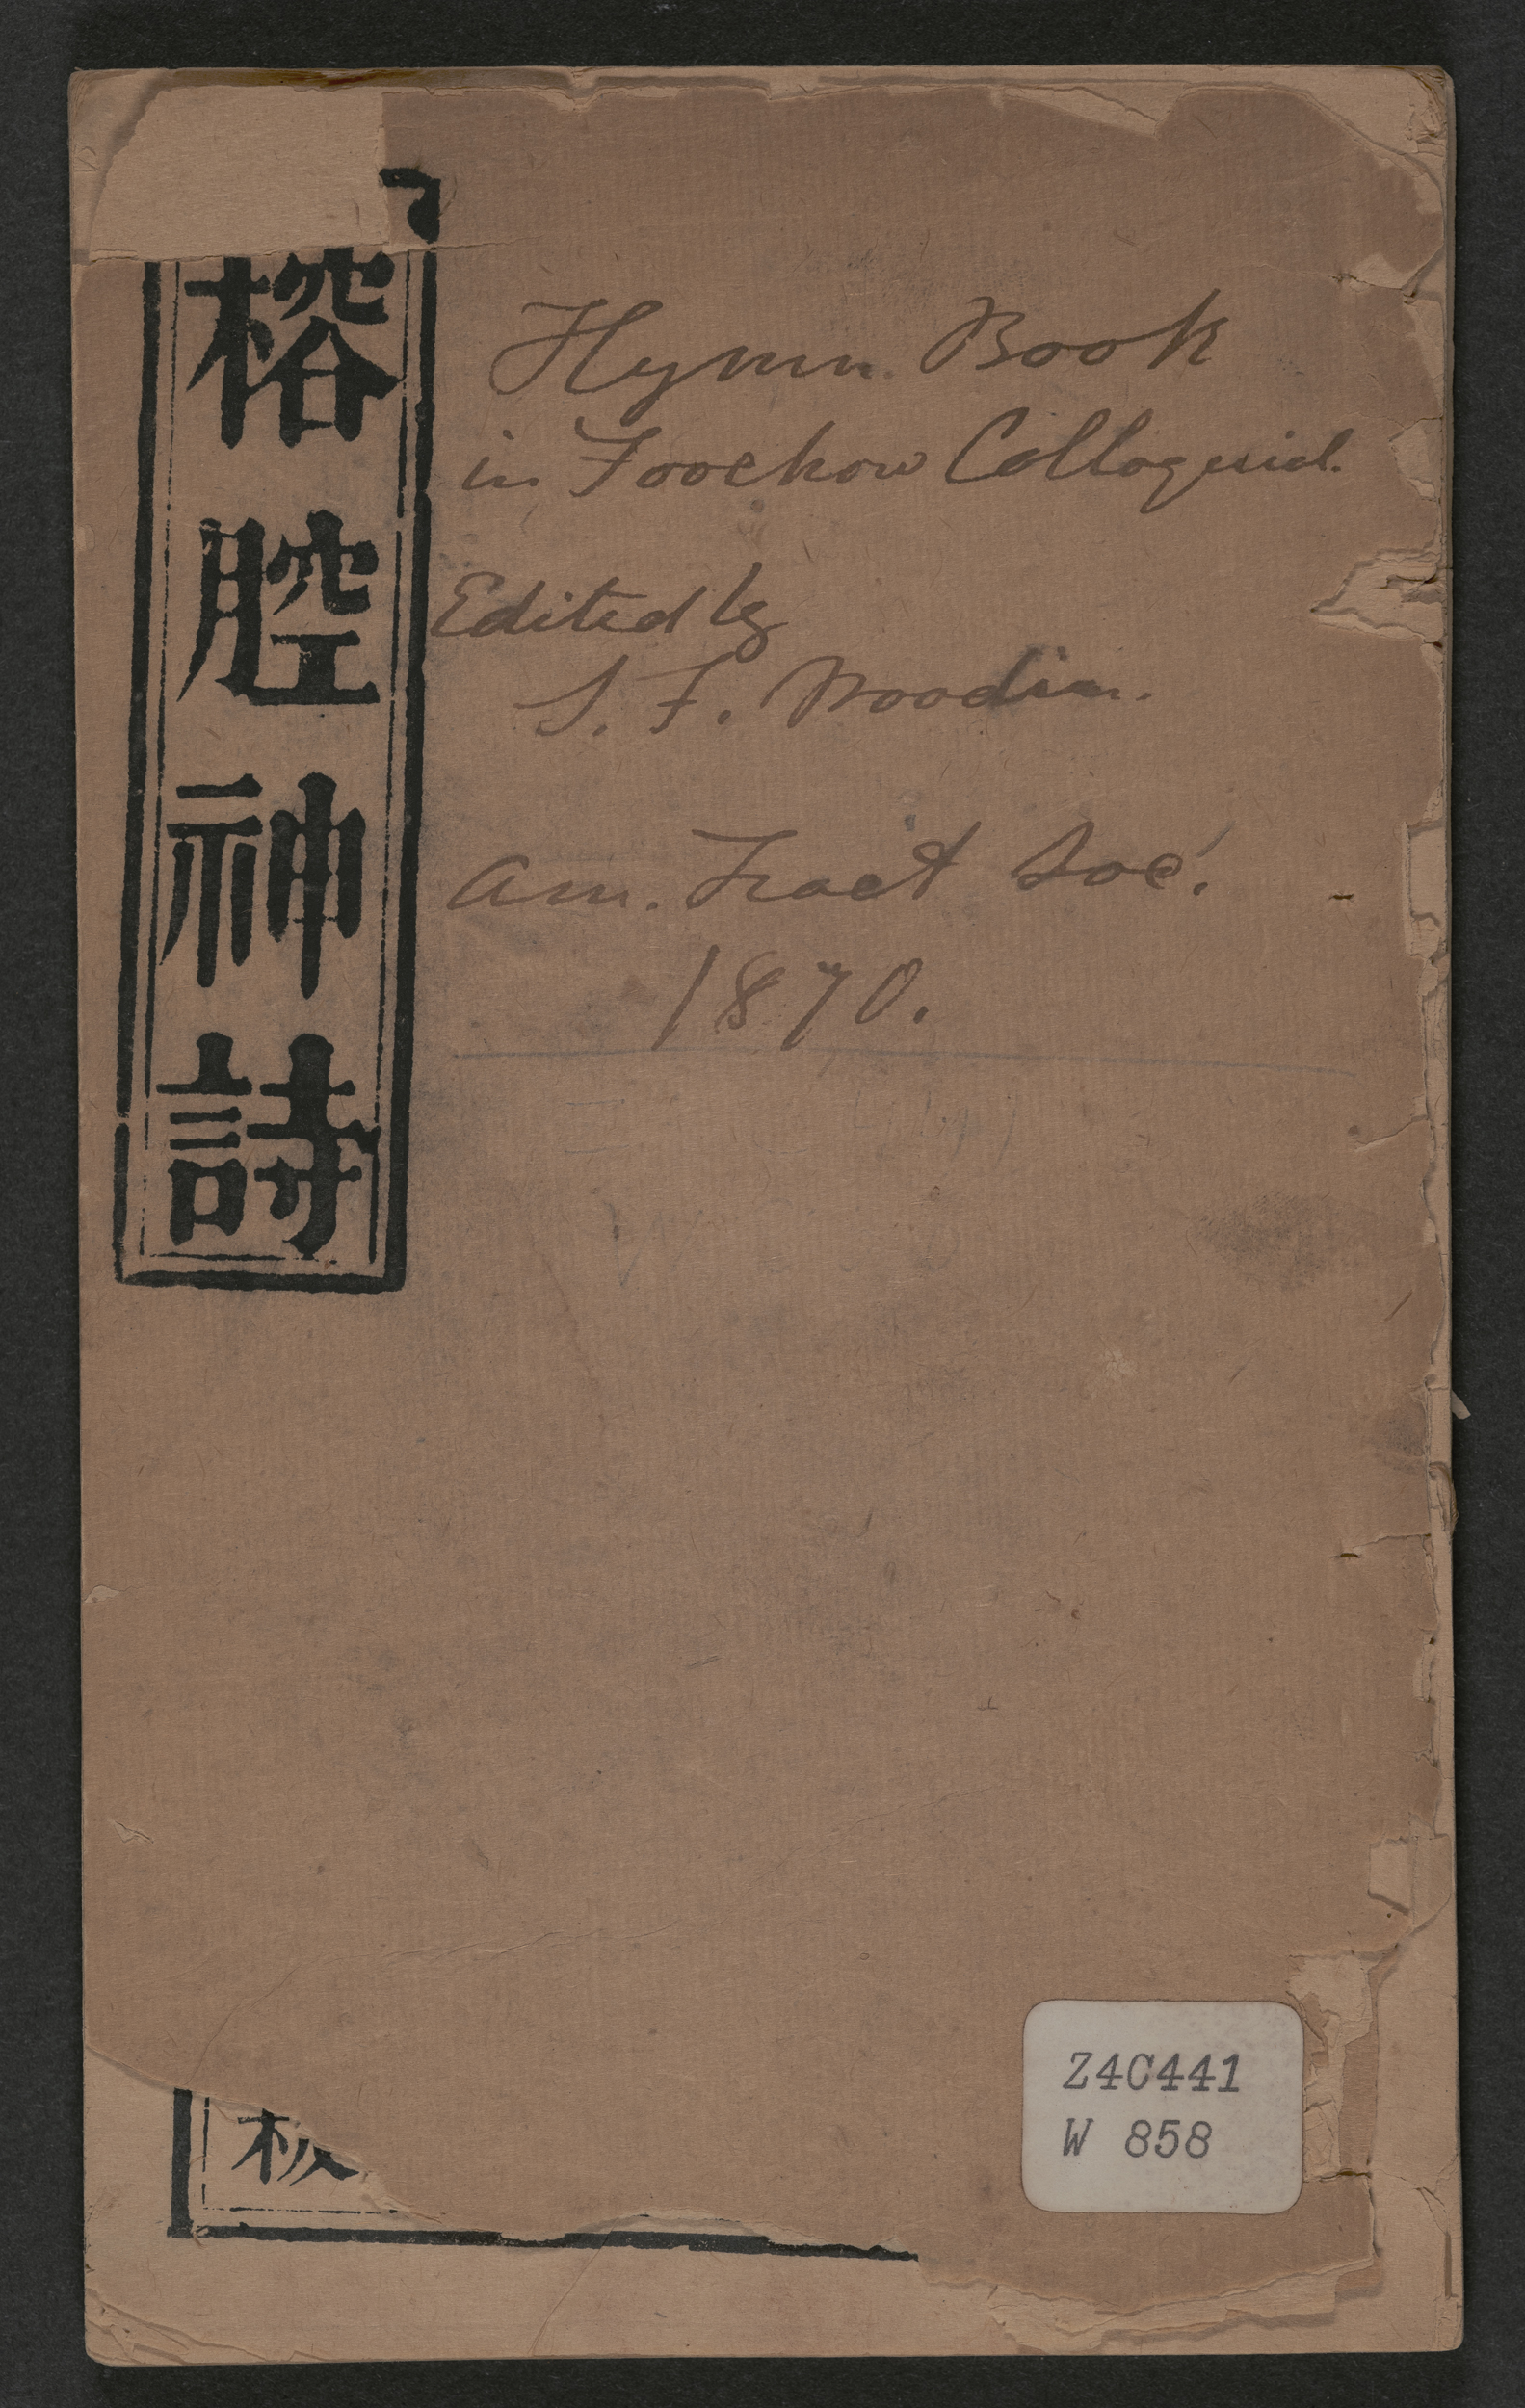 榕腔神詩
Hymn Book
in Foochow Colloquial.
Edited by
S. F. Woodin.
Am. Tract Soc'.
1870.
板
Z4C441
W 858